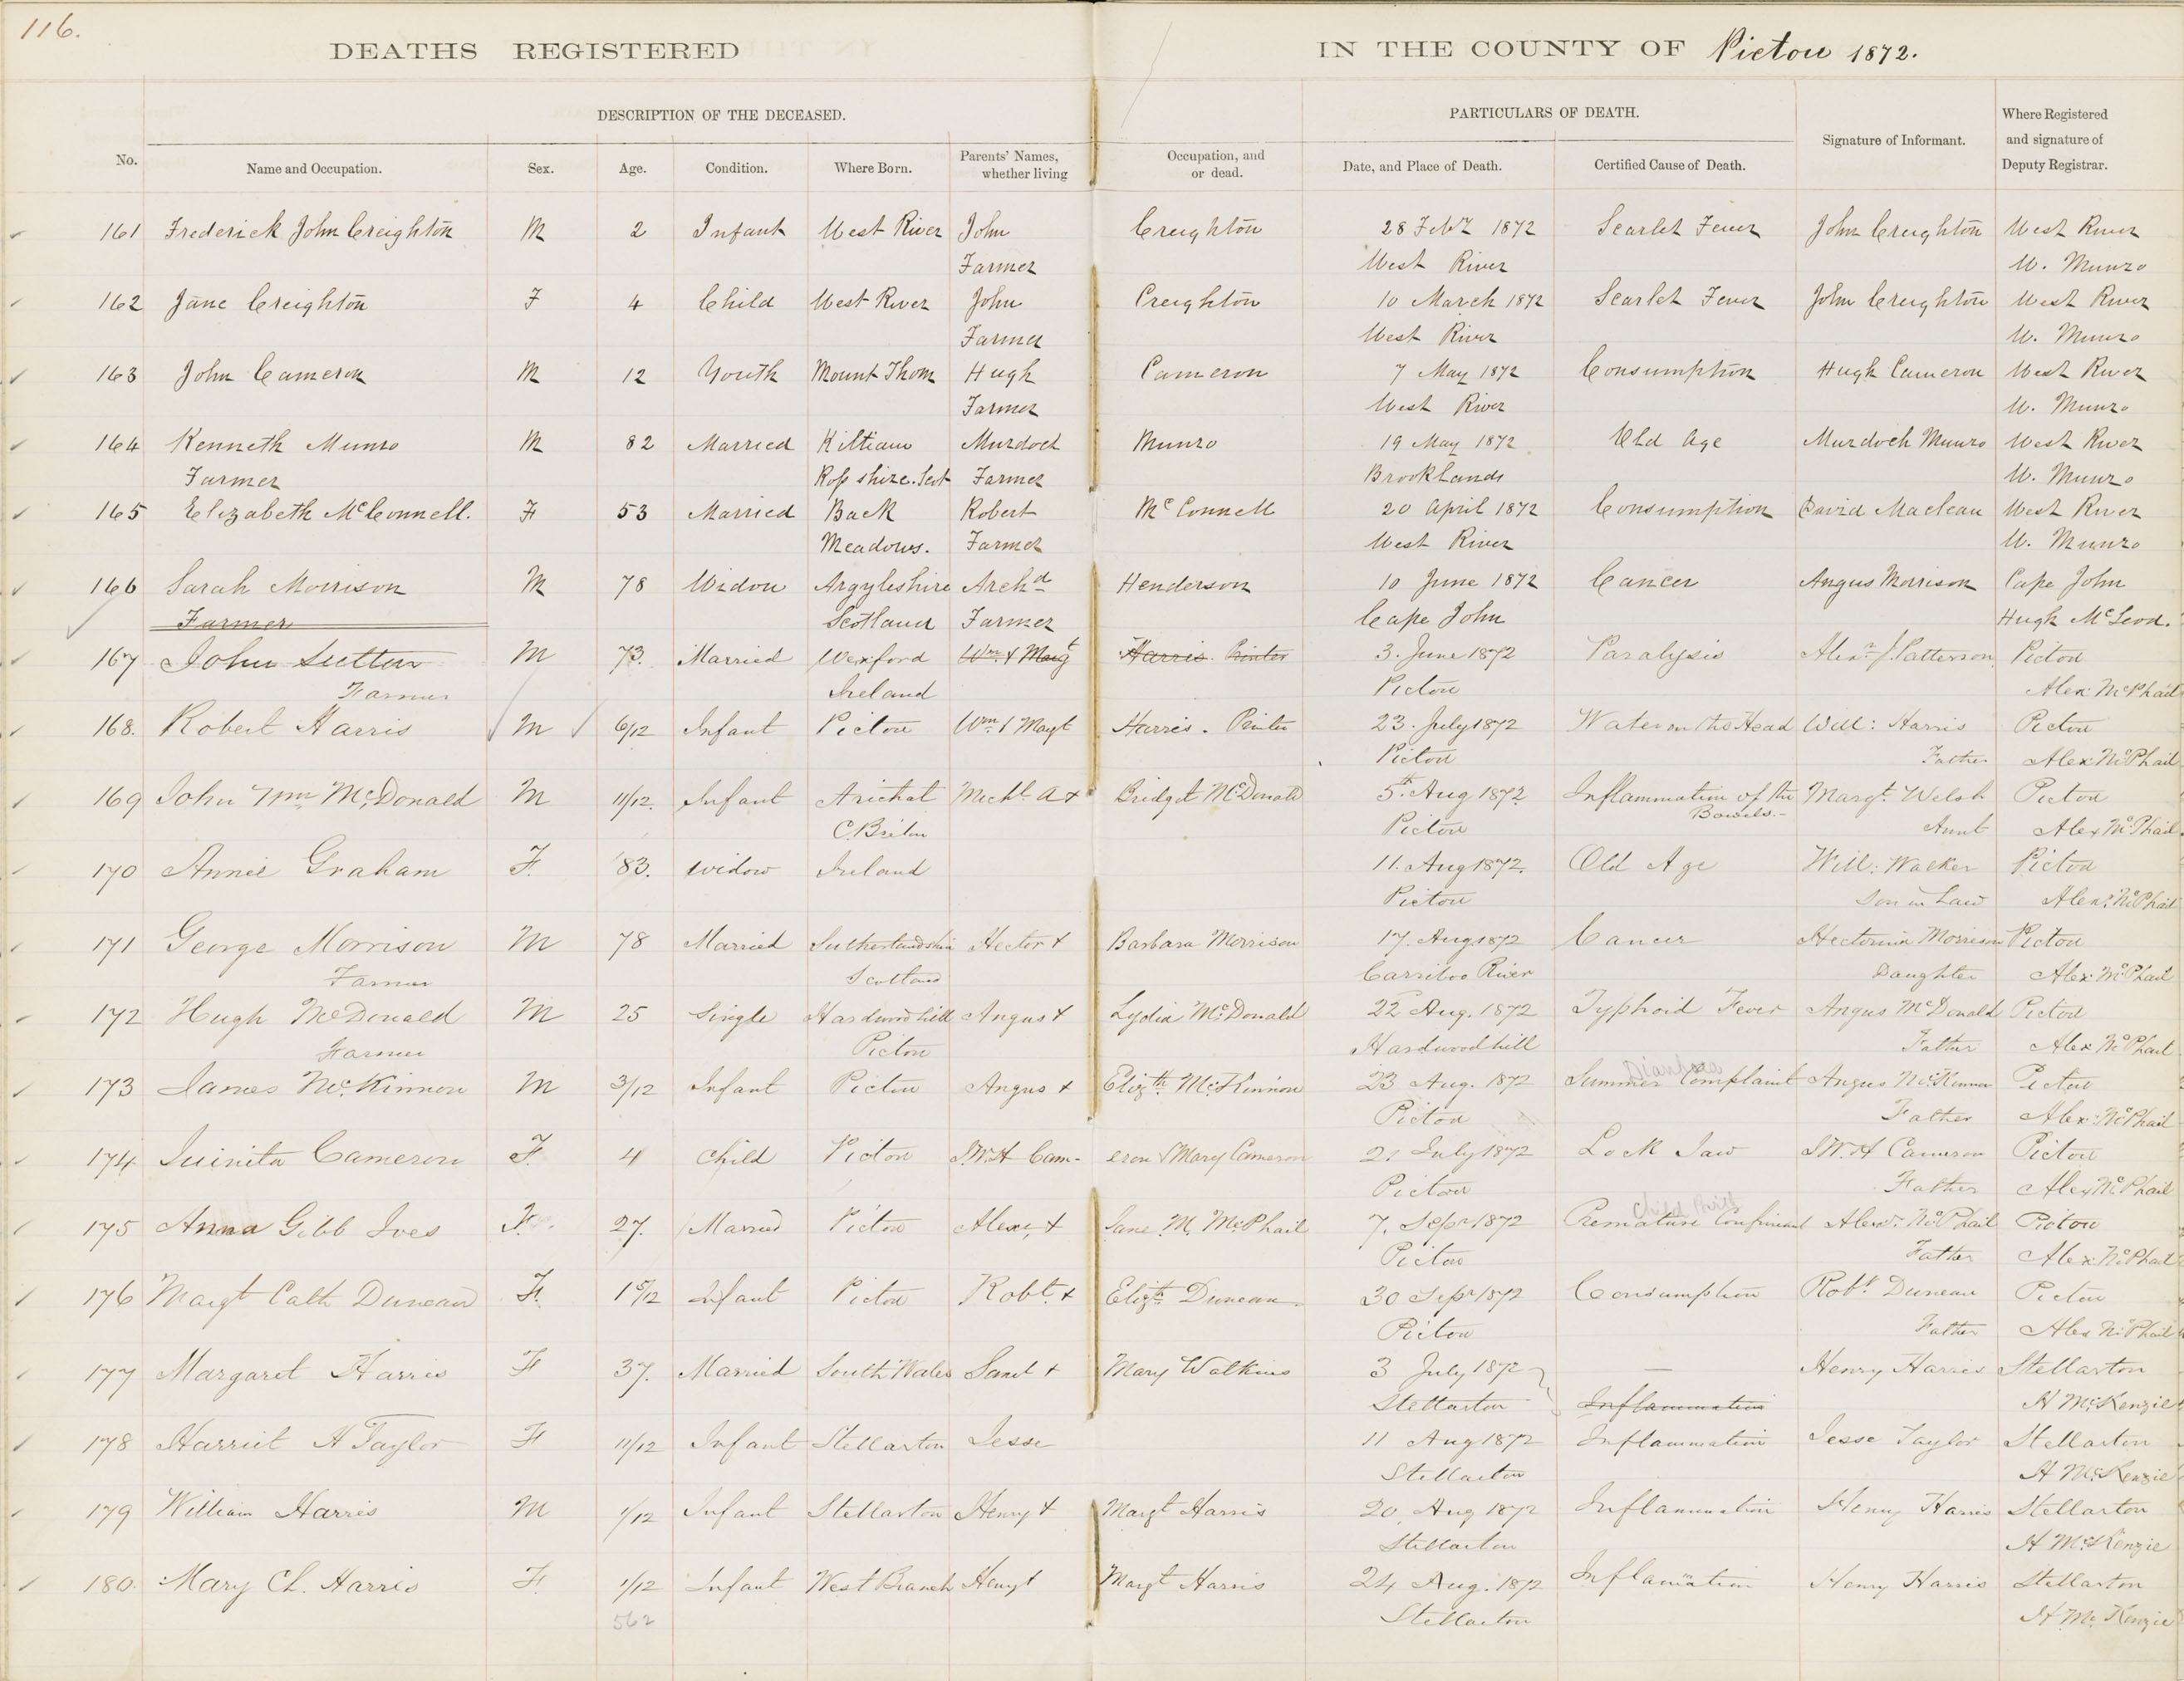 116.
DEATHS REGISTERED IN THE COUNTY OF Pictou 1872.
DESCRIPTION OF THE DECEASED. PARTICULARS OF DEATH. Where Registered
No. Name and Occupation. Sex. Age. Condition. Where Born. Parents' Names, Occupation, and Date, and Place of Death. Certified Cause of Death. Signature of Informant. and signature of
whether living or dead. Deputy Registrar.
161 Frederick John Creighton M 2 Infant West River John Creighton 28 Feby 1872 Scarlet Fever John Creighton West River
Farmer West River W. Munro
162 Jane Creighton F 4 Child West River John Creighton 10 March 1872 Scarlet Fever John Creighton West River
Farmer West River W. Munro
163 John Cameron M 12 Youth Mount Thom Hugh Cameron 7 May 1872 Consumption Hugh Cameron West River
Farmer West River W. Munro
164 Kenneth Munro M 82 Married Kiltiam Murdoch Munro 19 May 1872 Old Age Murdoch Munro West River
Farmer Ross shire. Scot Farmer Brooklands W. Munro
165 Elizabeth McConnell. F 53 Married Back Robert McConnell 20 April 1872 Consumption David Maclean West River
Meadows. Farmer West River W. Munro
166 Sarah Morrison M 78 Widow Argyleshire Archd Henderson 10 June 1872 Cancer Angus Morrison Cape John
Farmer Scotland Farmer Cape John Hugh McLeod.
167 John Sutton M 73. Married Wexford Wm. & Margt Harris. Printer 3. June 1872 Paralysis Alexr J. Patterson Pictou
Farmer Ireland Pictou Alex McPhail
168. Robert Harris M 6/12 Infant Pictou Wm & Margt Harris. Printer 23. July 1872 Water on the Head Will: Harris Pictou
Pictou Father Alex McPhail
169 John Wm McDonald M 11/12. Infant Arichat Michl. A & Bridget McDonald 5th Aug 1872 Inflammation of the Margt. Welsh Pictou
C. Breton Pictou Bowels.- Aunt Alex McPhail
170 Annie Graham F. 83. Widow Ireland 11. Aug 1872. Old Age Will: Walker Pictou
Pictou Son in Law Alexr. McPhail
171 George Morrison M 78 Married Sutherlandshire Hector & Barbara Morrison 17. Aug 1872 Cancer Hectorina Morrison Pictou
Farmer Scotland Carriboo River Daughter Alex McPhail
172 Hugh McDonald M 25 Single Hardwood hill Angus & Lydia McDonald 22 Aug. 1872 Typhoid Fever Angus McDonald Pictou
Farmer Pictou Hardwoodhill Father Alex McPhail
Diarrhea
173 James McKinnon M 3/12 Infant Pictou Angus & Elizth McKinnon 23 Aug. 1872 Summer Complaint Angus McKinnon Pictou
Pictou Father Alex McPhail
174 Juinita Cameron F. 4 Child Pictou J.W.H Cam- eron & Mary Cameron 21 July 1872 Lock Jaw J.W.H Cameron Pictou
Pictou Father Alex McPhail
Child Birth
175 Anna Gibb Ives F. 27. Married Pictou Alexr, & Jane. M. McPhail 7. Sepr 1872 Premature Confinement Alexr. McPhail Pictou
Pictou Father Alex McPhail
176 Margt Cath Duncan F. 1 5/12 Infant Pictou Robt. & Elizth Duncan 30 Sepr 1872 Consumption Robt. Duncan Pictou
Pictou Father Alex McPhail
177 Margaret Harris F 37. Married South Wales Saml & Mary Watkins 3 July 1872 — Henry Harris Stellarton
Stellarton Inflammation H McKenzie
178 Harriet A Taylor F 11/12 Infant Stellarton Jesse 11 Aug 1872 Inflammation Jesse Taylor Stellarton
Stellarton H McKenzie
179 William Harris M 1/12 Infant Stellarton Henry & Margt Harris 20 Aug 1872 Inflammation Henry Harris Stellarton
Stellarton H McKenzie
180. Mary Ch. Harris F. 1/12 Infant West Branch Henry & Margt Harris 24 Aug. 1872 Inflamation Henry Harris Stellarton
562 Stellarton H. McKenzie